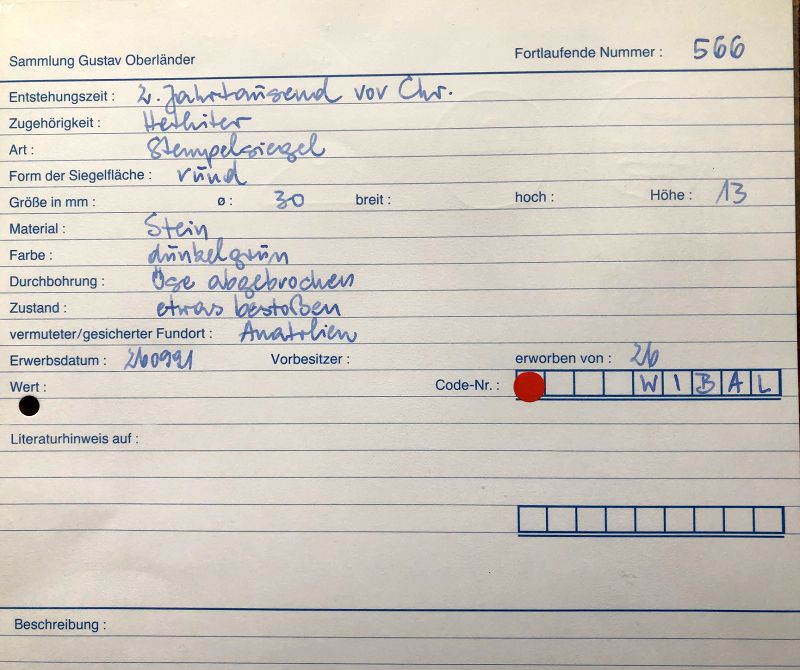 Sammlung Gustav Oberländer Fortlaufende Nummer : 566
Entstehungszeit : 2. Jahrtausend vor Chr.
Zugehörigkeit : Hethiter
Art : Stempelsiegel
Form der Siegelfläche : rund
Größe in mm : ø : 30 breit : hoch : Höhe : 13
Material : Stein
Farbe : dunkelgrün
Durchbohrung : Öse abgebrochen
Zustand : etwas bestoßen
vermuteter/gesicherter Fundort : Anatolien
Erwerbsdatum : 260991 Vorbesitzer : erworben von : 26
Wert : Code-Nr. : WIBAL
Literaturhinweis auf :
Beschreibung :